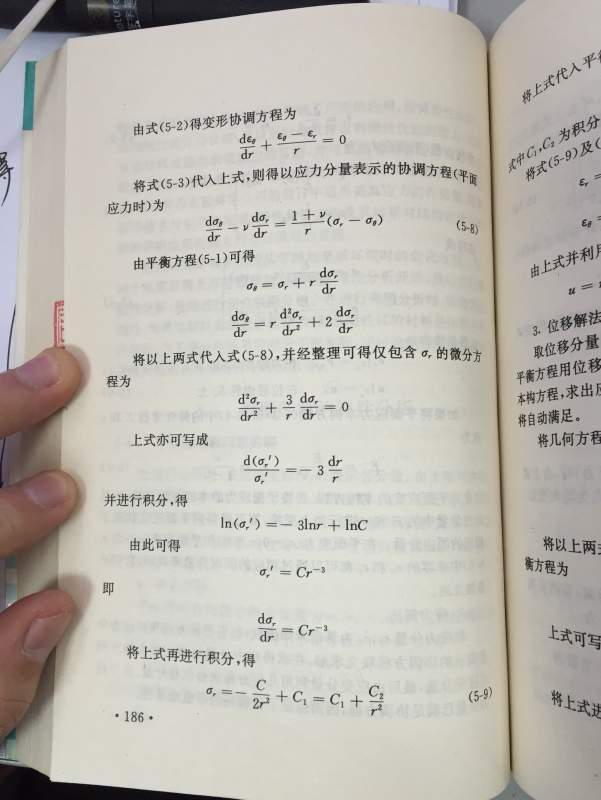 由式(5-2)得变形协调方程为
dεθ/dr + (εθ − εr)/r = 0
将式(5-3)代入上式,则得以应力分量表示的协调方程(平面
应力时)为
dσθ/dr − ν dσr/dr = (1 + ν)/r (σr − σθ) (5-8)
由平衡方程(5-1)可得
σθ = σr + r dσr/dr
dσθ/dr = r d²σr/dr² + 2 dσr/dr
将以上两式代入式(5-8),并经整理可得仅包含 σr 的微分方
程为
d²σr/dr² + 3/r dσr/dr = 0
上式亦可写成
d(σr′)/σr′ = − 3 dr/r
并进行积分,得
ln(σr′) = − 3lnr + lnC
由此可得
σr′ = Cr⁻³
即
dσr/dr = Cr⁻³
将上式再进行积分,得
σr = − C/2r² + C₁ = C₁ + C₂/r² (5-9)
· 186 ·
将上式代入平
式中 C₁,C₂ 为积分
将式(5-9)及(
εr =
εθ =
由上式并利用
u =
3. 位移解法
取位移分量
平衡方程用位移
本构方程,求出应
将自动满足。
将几何方程
将以上两
衡方程为
上式可写
将上式进